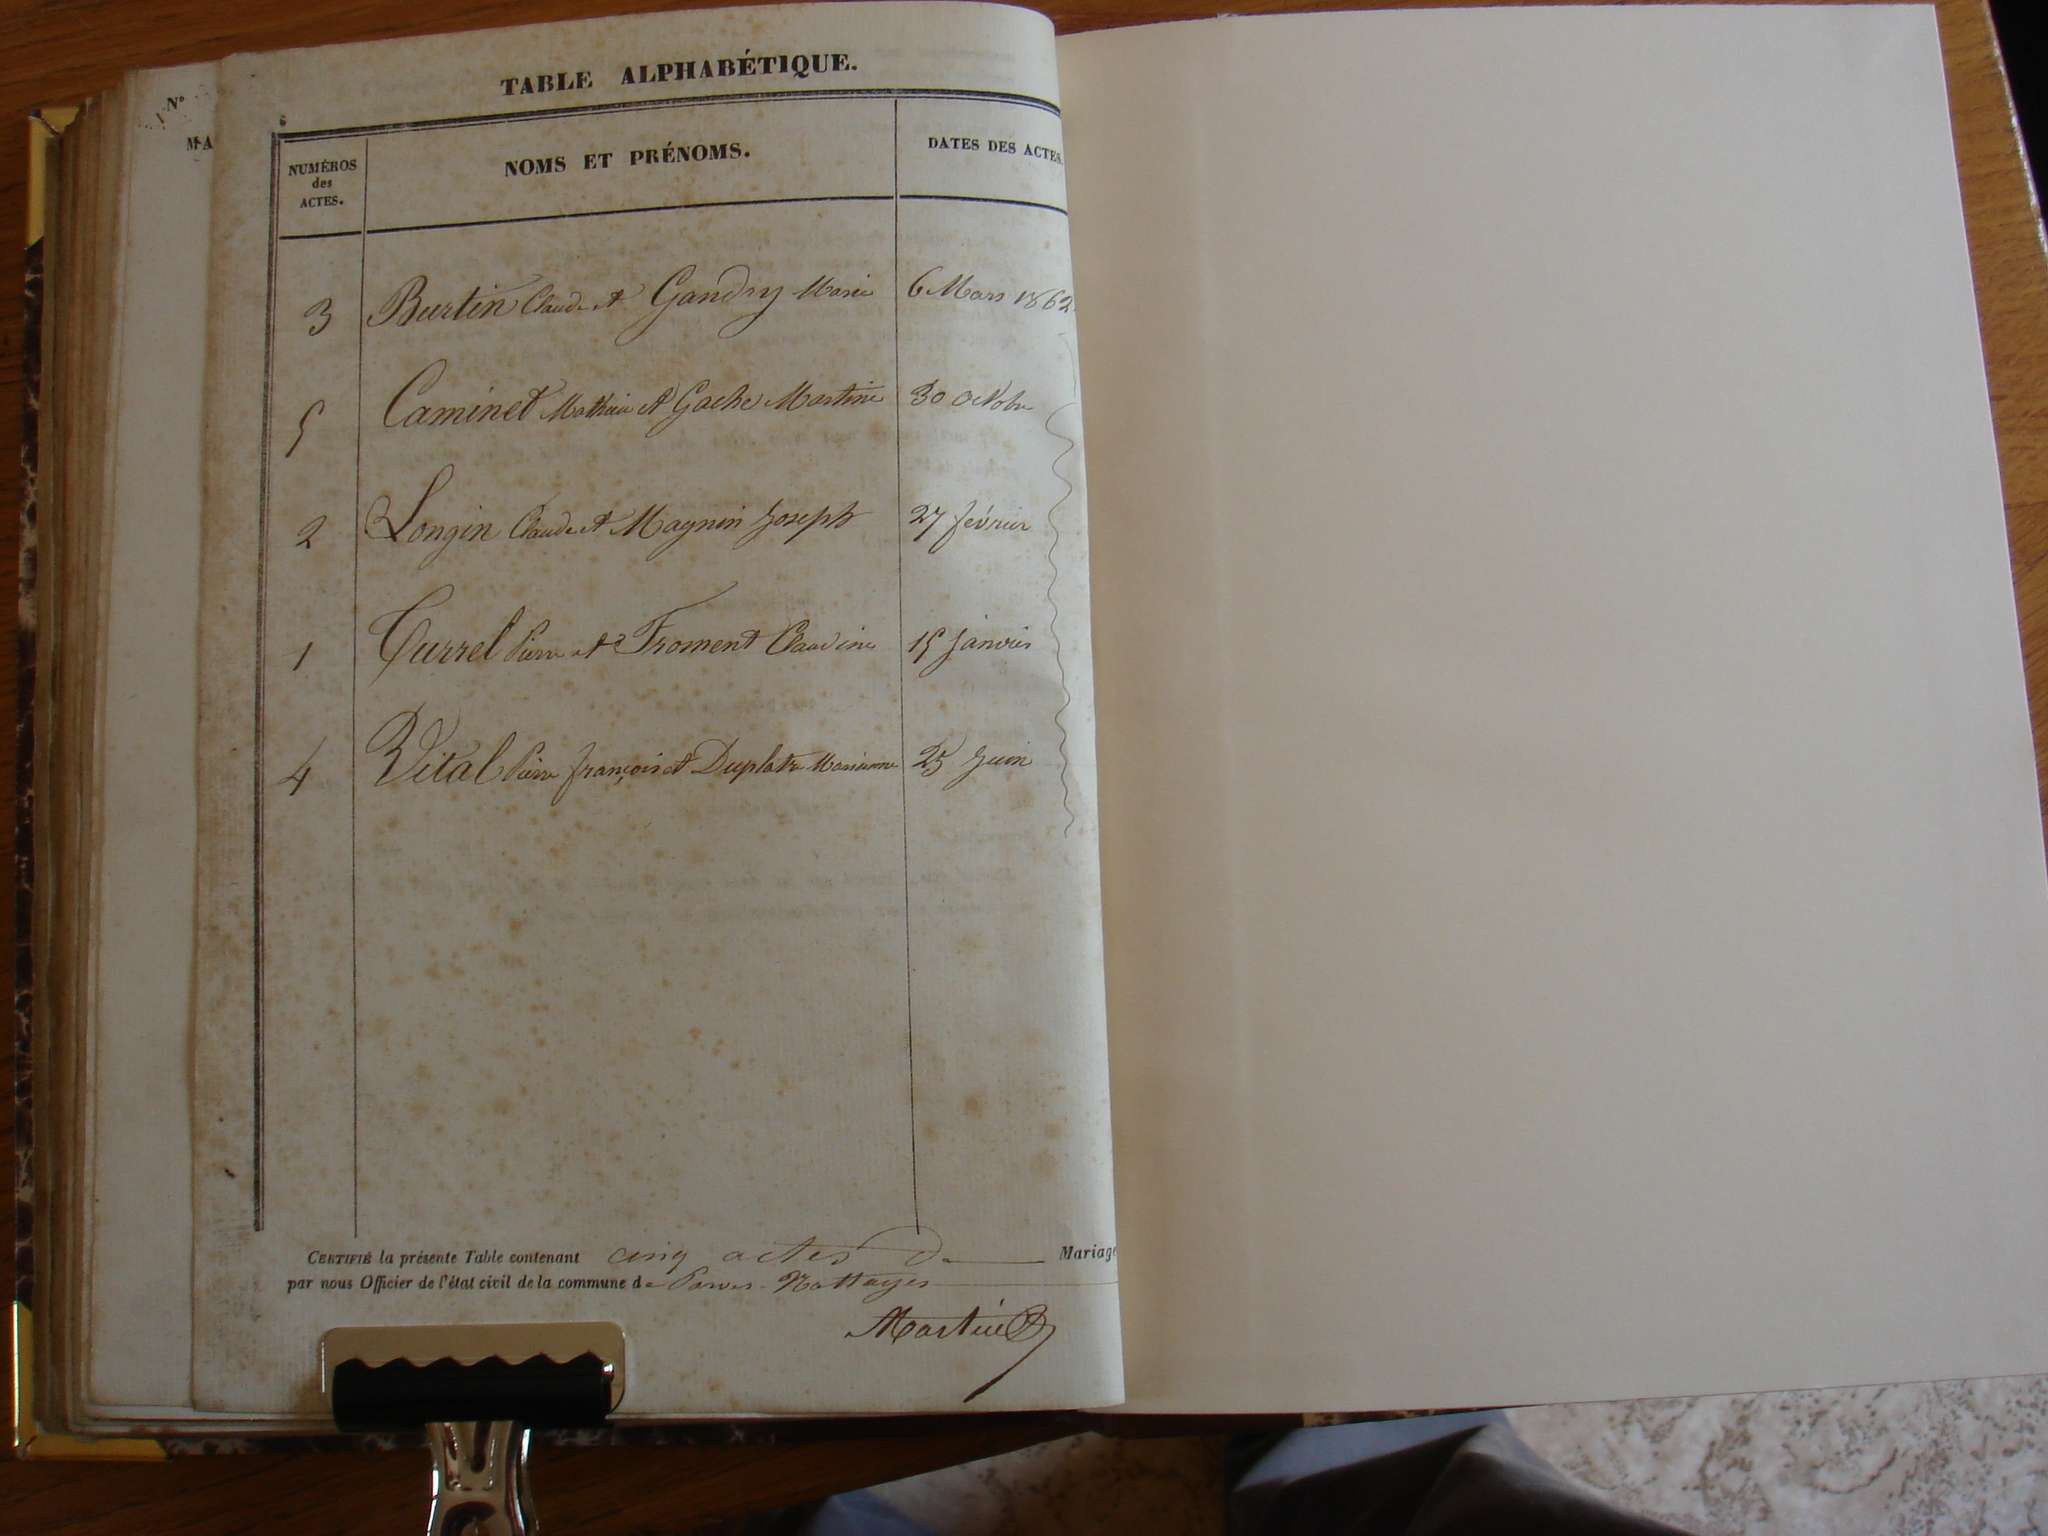 N°
MA
TABLE ALPHABÉTIQUE.
NUMÉROS
des
ACTES.
NOMS ET PRÉNOMS.
DATES DES ACTES.
3 Burtin Claude et Gandry Marie 6 Mars 1862
5 Caminet Mathieu et Gache Martine 30 octobre
2 Longin Claude et Magnin Joseph 27 février
1 Currel Pierre et Froment Claudine 15 janvier
4 Vital Pierre françois et Duplatre Marianne 25 Juin
CERTIFIÉ la présente Table contenant cinq actes de Mariage
par nous Officier de l'état civil de la commune de Nattages